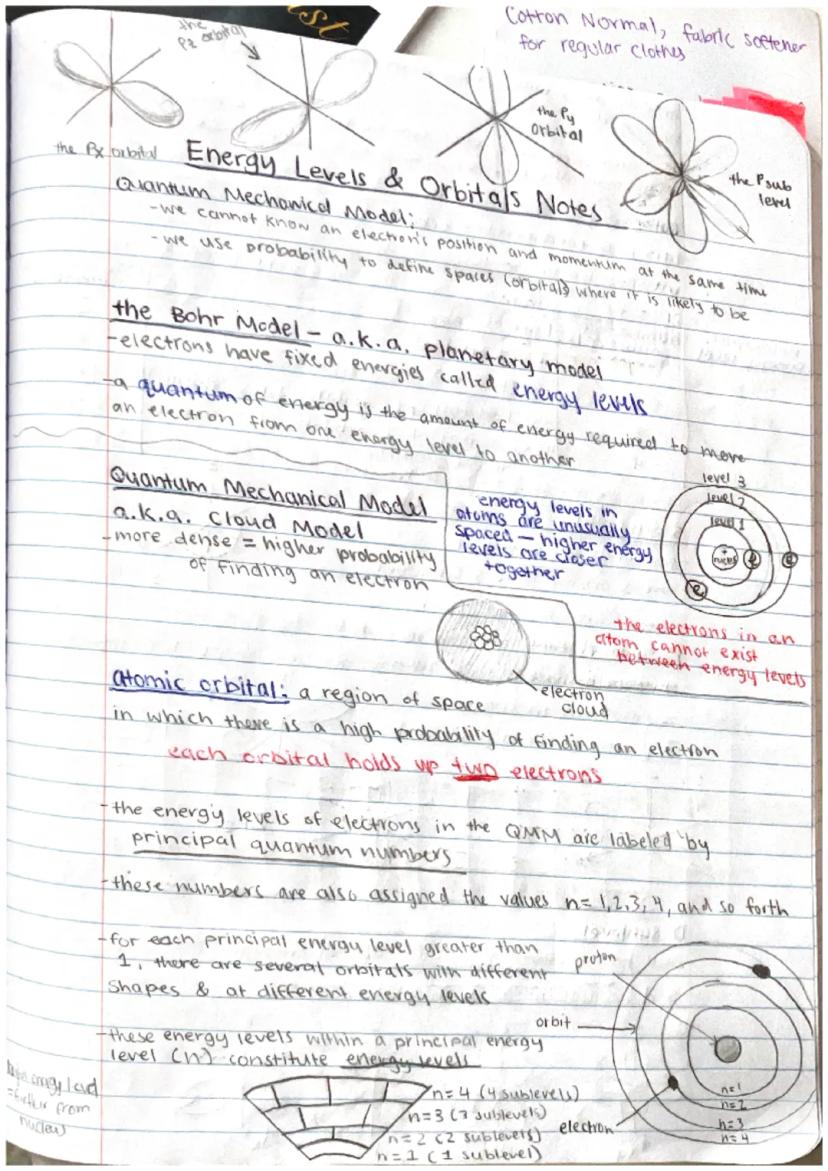 st
Cotton Normal, fabric softener
for regular clothes
the
Pz orbital
the Py
orbital
the Px orbital
the P sub
level
Energy Levels & Orbitals Notes
Quantum Mechanical Model:
-we cannot know an electron's position and momentum at the same time
-we use probability to define spaces (orbitals) where it is likely to be
the Bohr Model - a.k.a. planetary model
-electrons have fixed energies called energy levels
-a quantum of energy is the amount of energy required to move
an electron from one energy level to another
Quantum Mechanical Model
a.k.a. Cloud Model
-more dense = higher probability
of finding an electron
energy levels in
atoms are unusually
spaced - higher energy
levels are closer
together
level 3
level 2
level 1
+
e
e
e
the electrons in an
atom cannot exist
between energy levels
electron
cloud
atomic orbital: a region of space
in which there is a high probability of finding an electron
each orbital holds up two electrons
-the energy levels of electrons in the QMM are labeled by
principal quantum numbers
-these numbers are also assigned the values n=1,2,3,4, and so forth
-for each principal energy level greater than
1, there are several orbitals with different
shapes & at different energy levels
proton
orbit
-these energy levels within a principal energy
level (n) constitute energy levels
energy level
= further from
nucleus
n=4 (4 sublevels)
n=3 (3 sublevels)
n=2 (2 sublevels)
n=1 (1 sublevel)
electron
n=1
n=2
n=3
n=4